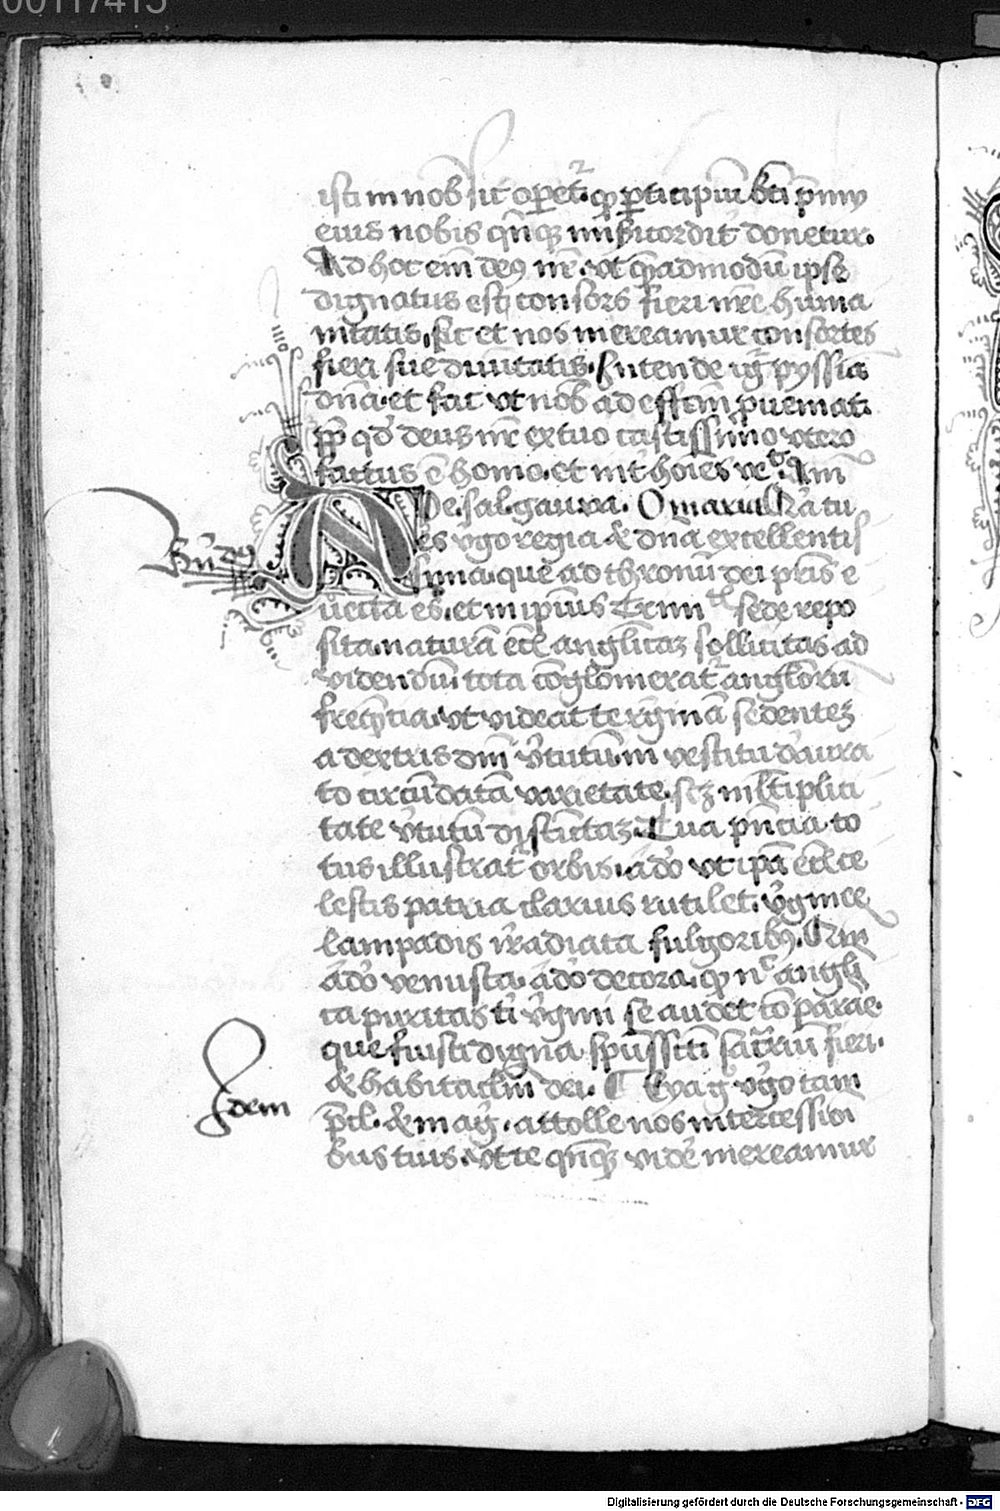 00117415
isti in nob̄ sic op̄et᷑ qꝫ ꝑticipiū bt̄i p̄mij
eius nobis qn̄qꝫ mīs̄icordit̄ donetur.
Ad hoc em̄ deꝰ nr̄ vt quēadmodū ipse
dignatus est consors fieri nr̄e huma
nitatis, sic et nos mereamur consortes
fieri sue diuītatis. Intende iḡ pyssīa
dn̄a. et fac vt nob̄ ad effcm̄ ꝑueniat.
ꝓp̄ qd̄ deus nr̄ ex tuo castissimo vtero
factus ē homo. et int̄ hoīes
De sal. gaura. O maria
es v̓go regia & dn̄a excellentis
sima. que ad thronū dei pr̄is e
uecta es. et in ip̄ius sede repo
sita. naturā ect̄ anglīcaꝫ sollicitas ad
videndū. tota cōglomerat᷑ angl̄orū
freqn̄tia. vt videat te rēginā sedenteꝫ
a dextris dn̄i v̓tutū. in vestitu d̓aura
to circūdatā varietate. scꝫ ml̄tiplici
tate v̓tutū distīctaꝫ. Tua pn̄cia to
tus illustrat᷑ orbis. ādo vt ip̄a ect̄ ce
lestis patria clarius rutilet. v̓ginee
lampadis irradiata fulgoribꝰ.
ādo venusta. ādo decora. qꝫ nᶜ angli
ca puritas ti v̓gini se audet cōparare.
que fuisti digna spūssc̄ti sac̓riū fieri.
& habitaclm̄ dei. ¶ Eya g̊ v̓go tam
p̄cl. & mag̓. attolle nos intercessioni
bus tuis. vt te qn̄qꝫ videre mereamur
Idem
Digitalisierung gefördert durch die Deutsche Forschungsgemeinschaft - DFG